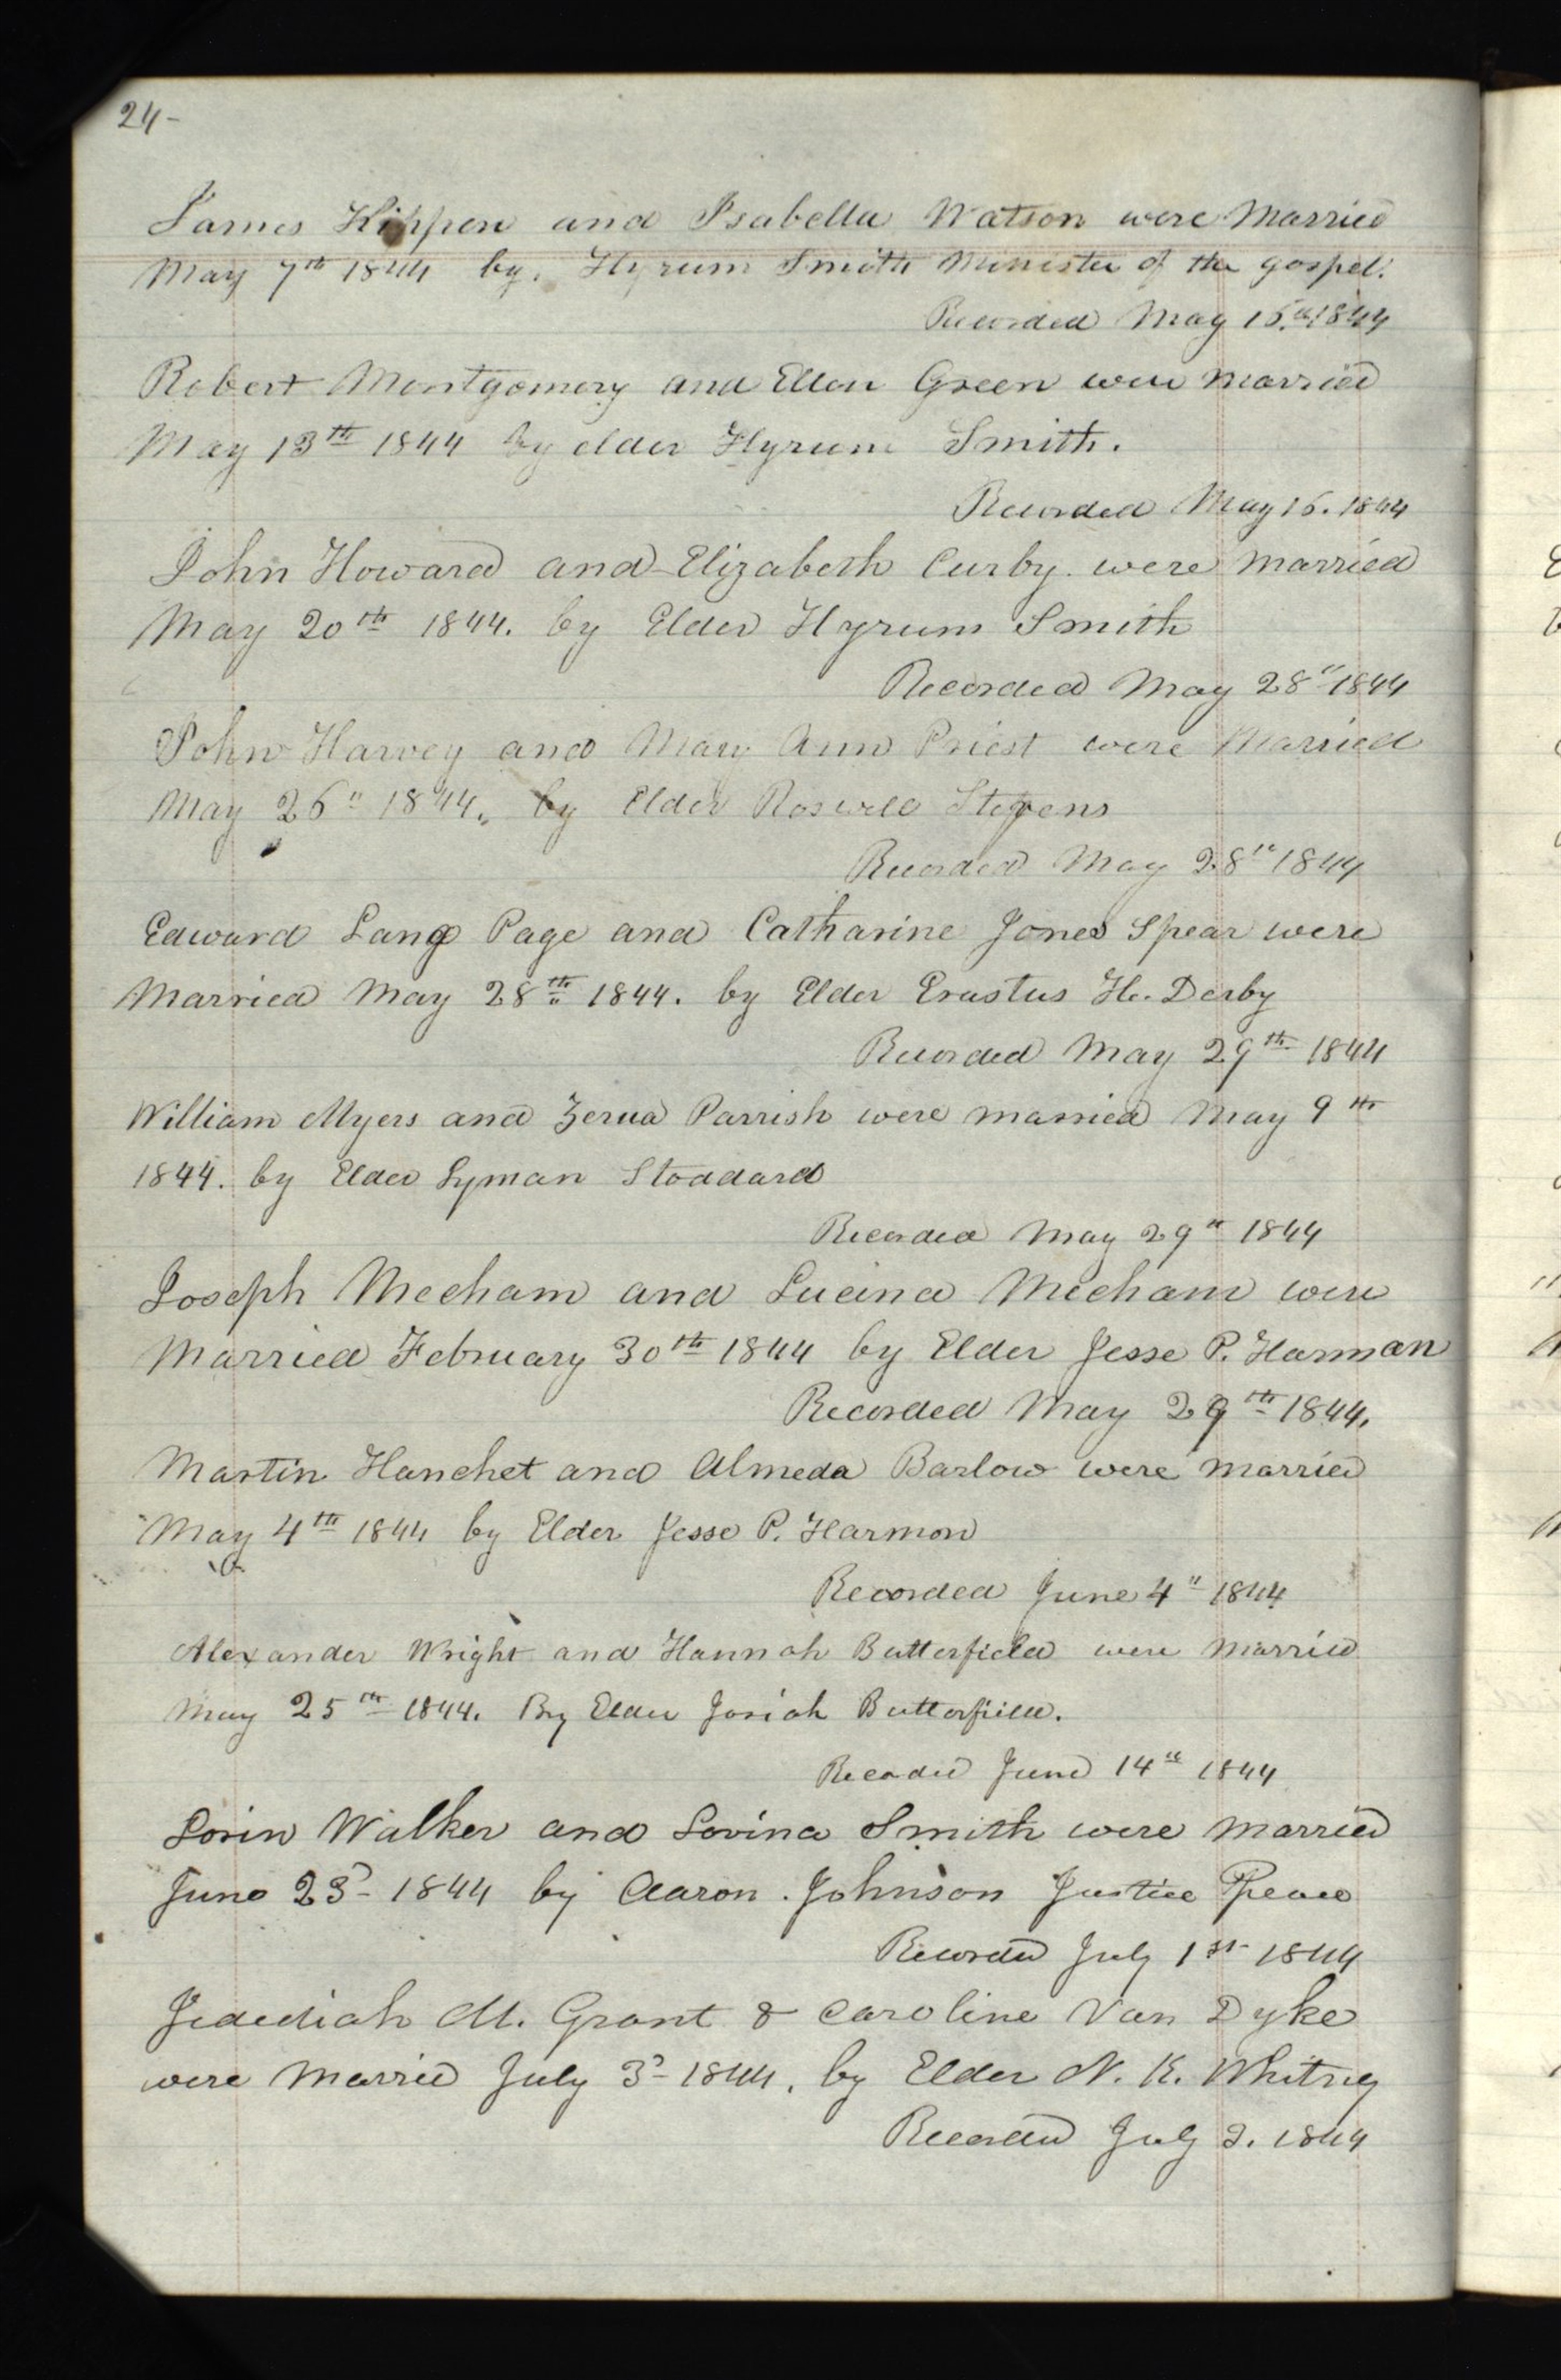 24-
James Kippen and Isabella Watson were Married
May 7th 1844 by. Hyrum Smith Minister of the gospel.
Recorded May 16.th 1844
Robert Montgomery and Ellen Green were married
May 13th 1844 by elder Hyrum Smith.
Recorded May 16. 1844
John Howard and Elizabeth Curby. were married
May 20th 1844. by Elder Hyrum Smith
Recorded May 28" 1844
John Harvey and Mary Ann Priest were Married
May 26" 1844. by Elder Roswell Stevens
Recorded May 28th 1844
Edward Lang Page and Catharine Jones Spear were
Married May 28th 1844. by Elder Erastus H. Derby
Recorded May 29th 1844
William Myers and Zerua Parrish were married May 9th
1844. by Elder Lyman Stoddard
Recorded May 29" 1844
Joseph Mecham and Lucina Mecham were
Married February 30th 1844 by Elder Jesse P. Harmman
Recorded May 29th 1844.
Martin Hanchet and Almeda Barlow were married
May 4th 1844 by Elder Jesse P. Harmon
Recorded June 4" 1844
Alexander Wright and Hannah Butterfield were Married
May 25th 1844. By Elder Josiah Butterfield.
Recorded June 14th 1844
Lorin Walker and Lovina Smith were Married
June 23d 1844 by Aaron. Johnson Justice Peace
Recorded July 1st 1844
Jedediah M. Grant & Caroline Van Dyke
were Married July 3d 1844. by Elder N. K. Whitney
Recorded July 3. 1844